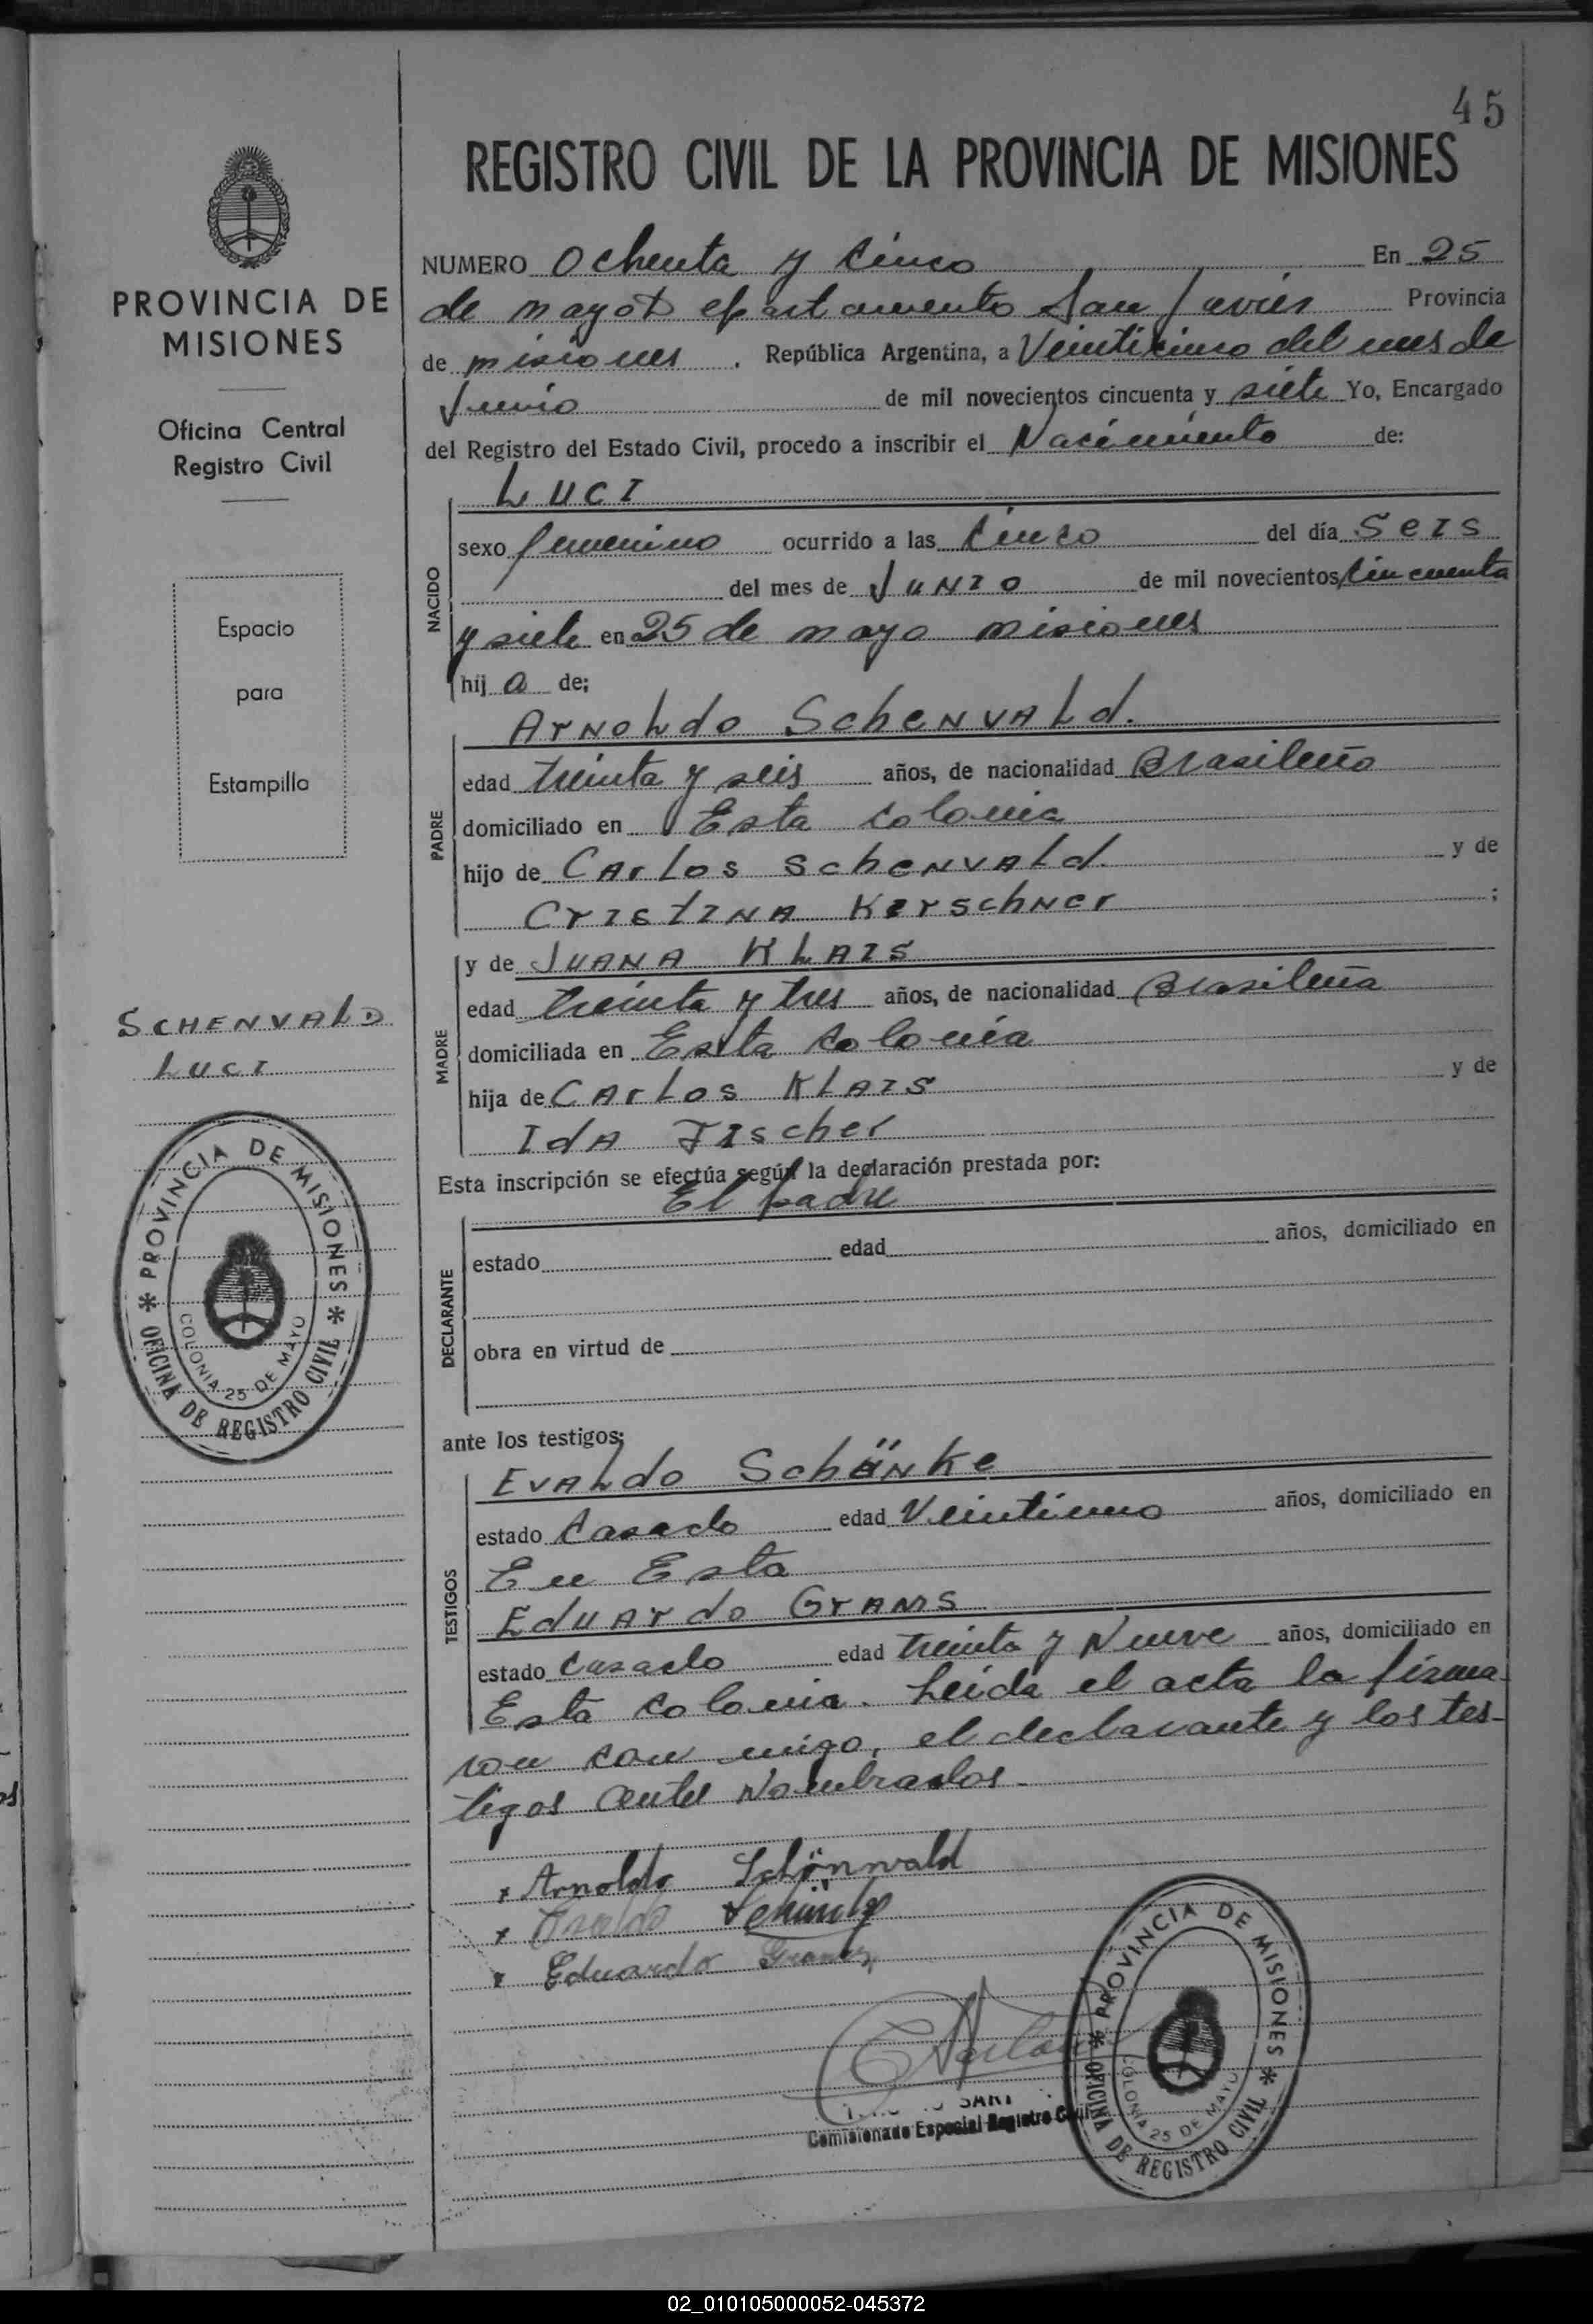 45
REGISTRO CIVIL DE LA PROVINCIA DE MISIONES
PROVINCIA DE
MISIONES
Oficina Central
Registro Civil
Espacio
para
Estampilla
SCHENVALD
LUCI
PROVINCIA DE MISIONES
COLONIA 25 DE MAYO
OFICINA DE REGISTRO CIVIL
NUMERO Ochenta y cinco En 25
de mayo Departamento San Javier Provincia
de misiones. República Argentina, a Veinticinco del mes de
Junio de mil novecientos cincuenta y siete Yo, Encargado
del Registro del Estado Civil, procedo a inscribir el Nacimiento de:
NACIDO
LUCI
sexo femenino ocurrido a las cinco del día Seis
del mes de Junio de mil novecientos cincuenta
y siete en 25 de mayo misiones
hij a de;
PADRE
Arnoldo Schenvald.
edad treinta y seis años, de nacionalidad Brasileño
domiciliado en Esta colonia
hijo de Carlos Schenvald. y de
Cristina Kirschner ;
MADRE
y de Juana Klais
edad treinta y tres años, de nacionalidad Brasileña
domiciliada en Esta colonia
hija de Carlos Klais y de
Ida Fischer
Esta inscripción se efectúa según la declaración prestada por:
El padre
DECLARANTE
estado edad años, domiciliado en
obra en virtud de
ante los testigos:
TESTIGOS
Evaldo Schänke
estado Casado edad Veintiuno años, domiciliado en
En Esta
Eduardo Grams
estado casado edad treinta y Nueve años, domiciliado en
Esta colonia. Leida el acta la firma
ron con migo, el declarante y los tes-
tigos antes Nombrados.
x Arnoldo Schönwald
x Evaldo
x Eduardo Grams
Comisionado Especial Registro Civil
PROVINCIA DE MISIONES
COLONIA 25 DE MAYO
OFICINA DE REGISTRO CIVIL
02_010105000052-045372